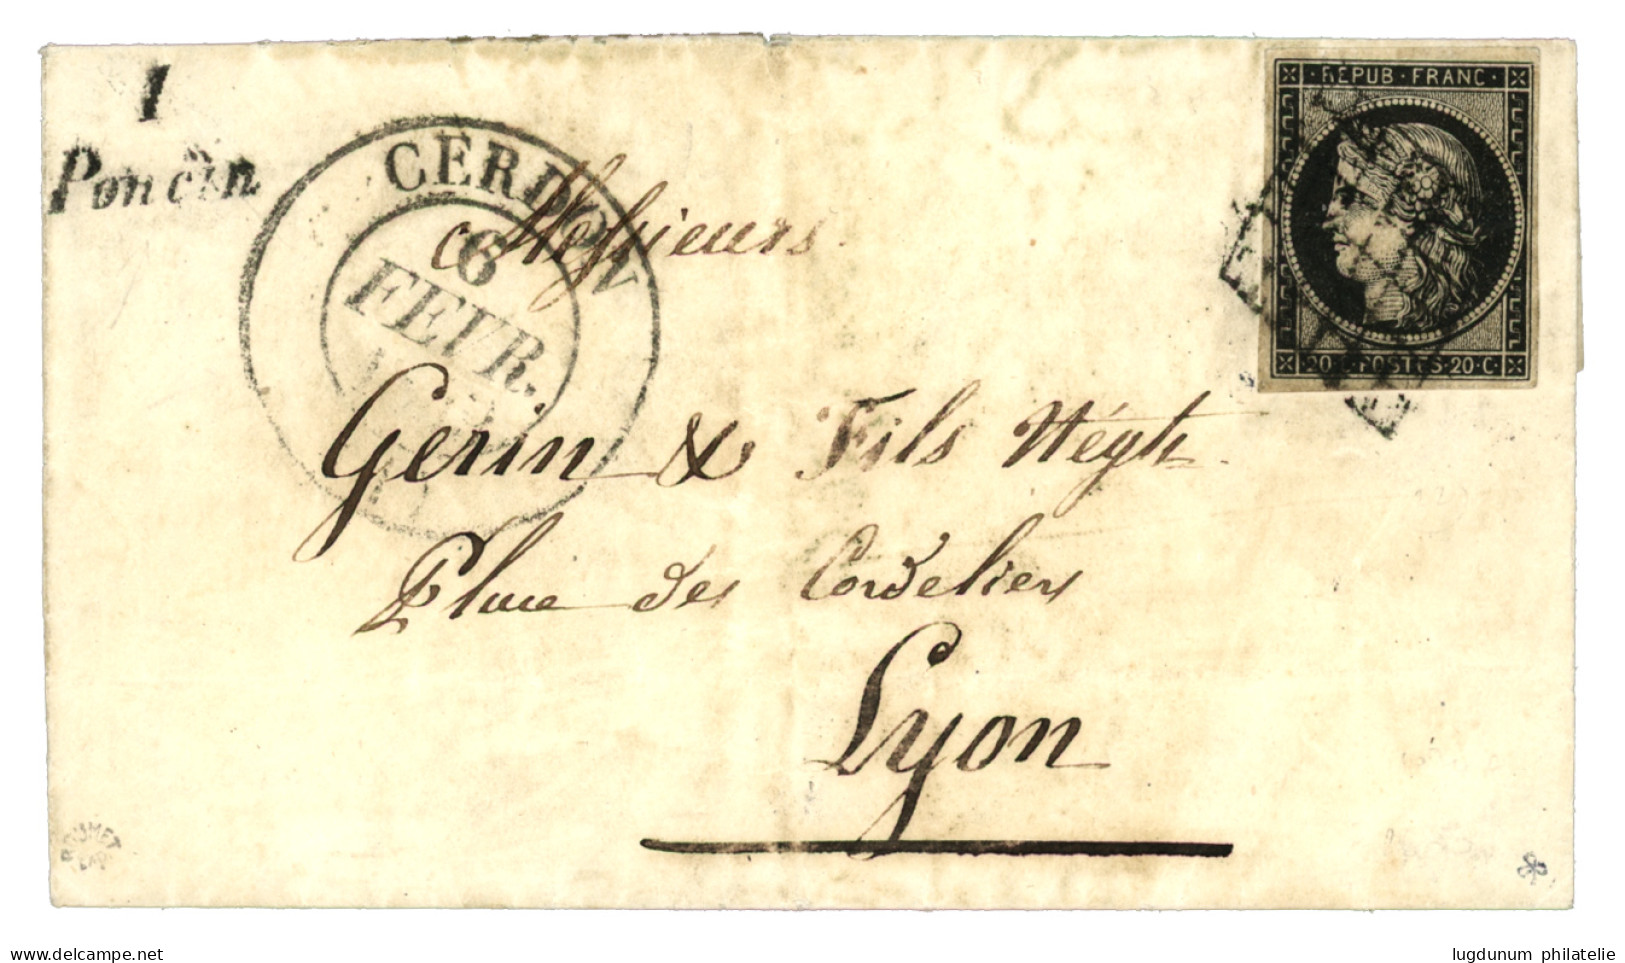 1
Poncin
CERDON
6
FEVR.
REPUB · FRANC ·
20 · C · POSTES · 20 · C ·
Messieurs
Gerin & Fils Négts
Place des Cordeliers
Lyon
ROUMET
www.delcampe.net
lugdunum philatelie